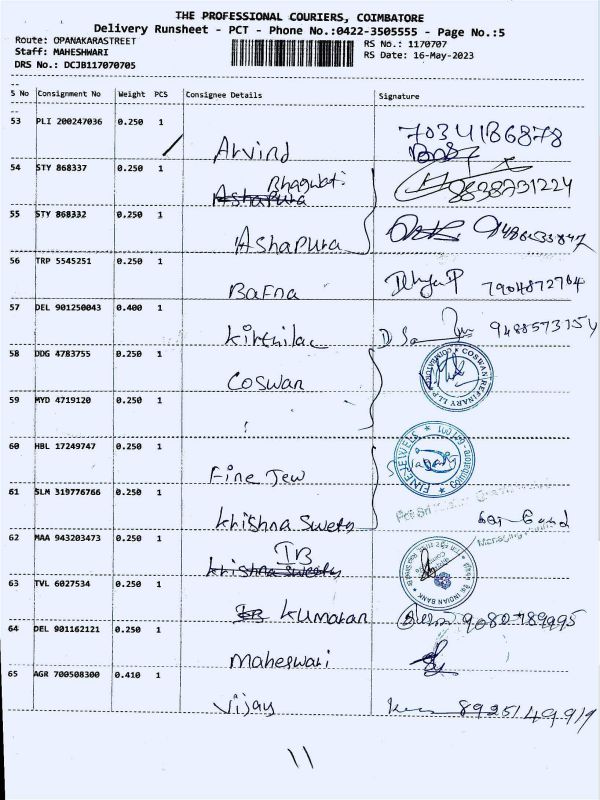 THE PROFESSIONAL COURIERS, COIMBATORE
Delivery Runsheet - PCT - Phone No.:0422-3505555 - Page No.:5
Route: OPANAKARASTREET RS No.: 1170707
Staff: MAHESHWARI RS Date: 16-May-2023
DRS No.: DCJB117070705
S No Consignment No Weight PCS Consignee Details Signature
53 PLI 200247036 0.250 1
Arvind
54 STY 868337 0.250 1
Bhagwati
Ashapura 8838731224
55 STY 868332 0.250 1
Ashapura
56 TRP 5545251 0.250 1
Bafna 7904872764
57 DEL 901250043 0.400 1
Kirthilac 9488573154
58 DDG 4783755 0.250 1
Coswan
COSWAN REFINARY LLP * COIMBATORE *
59 MYD 4719120 0.250 1
60 HBL 17249747 0.250 1
Fine Jew
FINE JEWELS
61 SLM 319776766 0.250 1
Khishna Swets
62 MAA 943203473 0.250 1
IB
Khishna Sweets
INDIAN BANK
63 TVL 6027534 0.250 1
Kumaran 9080789995
64 DEL 901162121 0.250 1
Maheswari
65 AGR 700508300 0.410 1
Vijay
11